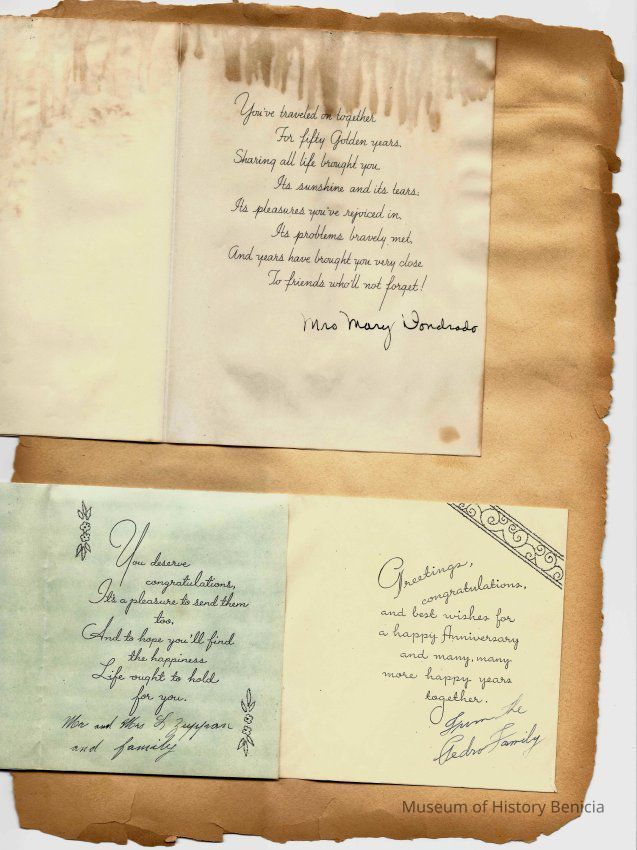 You've traveled on together
For fifty Golden years,
Sharing all life brought you
Its sunshine and its tears;
Its pleasures you've rejoiced in,
Its problems bravely met,
And years have brought you very close
To friends who'll not forget!
Mrs Mary Dondrado
You deserve
congratulations,
It's a pleasure to send them
too,
And to hope you'll find
the happiness
Life ought to hold
for you.
Mr and Mrs Zuppan
and family
Greetings,
congratulations,
and best wishes for
a happy Anniversary
and many, many
more happy years
together.
From the
Pedro Family
Museum of History Benicia